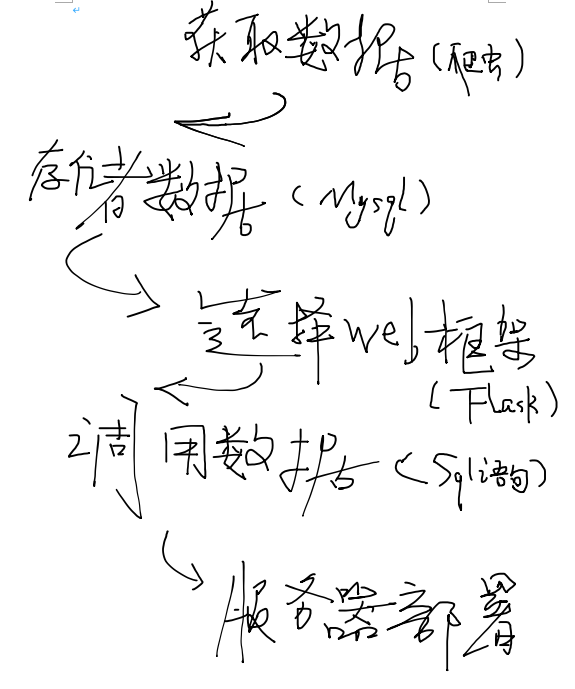 获取数据(爬虫)
存储数据(Mysql)
选择web框架
(Flask)
调用数据(Sql语句)
服务器部署